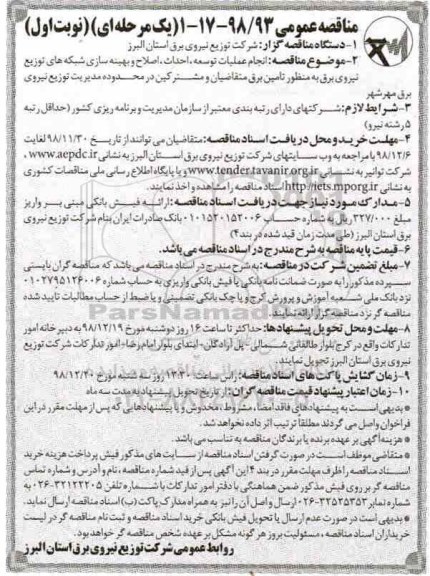 مناقصه عمومی ۹۸/۹۳-۱۷-۱ (یک مرحله‌ای) (نوبت اول)
۱-دستگاه مناقصه گزار: شرکت توزیع نیروی برق استان البرز
۲-موضوع مناقصه: انجام عملیات توسعه، احداث، اصلاح و بهینه سازی شبکه های توزیع
نیروی برق به منظور تامین برق متقاضیان و مشترکین در محدوده مدیریت توزیع نیروی
برق مهرشهر
۳-شرایط لازم: شرکتهای دارای رتبه بندی معتبر از سازمان مدیریت و برنامه ریزی کشور (حداقل رتبه
۵ رشته نیرو)
۴-مهلت خرید و محل دریافت اسناد مناقصه: متقاضیان می توانند از تاریخ ۹۸/۱۱/۳۰ لغایت
۹۸/۱۲/۶ با مراجعه به وب سایتهای شرکت توزیع نیروی برق استان البرز به نشانی www.aepdc.ir ،
شرکت توانیر به نشانی www.tender.tavanir.org.ir و یا پایگاه اطلاع رسانی ملی مناقصات کشوری
به نشانی http://iets.mporg.ir اسناد مناقصه را مشاهده و اخذ نمایند.
۵-مدارک مورد نیاز جهت دریافت اسناد مناقصه: ارائه فیش بانکی مبنی بر واریز
مبلغ ۳۲۷/۰۰۰ ریال به شماره حساب ۰۱۰۱۵۲۰۱۵۲۰۰۶ بانک صادرات ایران بنام شرکت توزیع نیروی
برق استان البرز (طی مدت زمان قید شده در بند۴)
۶-قیمت پایه مناقصه به شرح مندرج در اسناد مناقصه می باشد.
۷-مبلغ تضمین شرکت در مناقصه: به شرح مندرج در اسناد مناقصه می باشد که مناقصه گران بایستی
سپرده مذکور را به صورت ضمانت نامه بانکی یا فیش بانکی واریزی به حساب شماره ۰۱۰۲۷۹۵۱۲۶۰۰۶
نزد بانک ملی شعبه آموزش و پرورش کرج و یا چک بانکی تضمینی و یا ضبط از حساب مطالبات تایید شده
مناقصه گر نزد مناقصه گزار ارائه نمایند.
۸-مهلت و محل تحویل پیشنهادها: حداکثر تا ساعت ۱۶ روز دوشنبه مورخ ۹۸/۱۲/۱۹ به دبیرخانه امور
تدارکات واقع در کرج بلوار طالقانی شمالی- پل آزادگان- ابتدای بلوار امام رضا- امور تدارکات شرکت توزیع
نیروی برق استان البرز تحویل نمایند.
۹-زمان گشایش پاکت های اسناد مناقصه: راس ساعت ۱۳:۳۰ روز سه شنبه مورخ ۹۸/۱۲/۲۰
۱۰-زمان اعتبار پیشنهاد قیمت مناقصه گران: از تاریخ تحویل پیشنهاد به مدت سه ماه
* بدیهی است به پیشنهادهای فاقد امضا، مشروط، مخدوش و یا پیشنهادهایی که پس از مهلت مقرر در این
فراخوان واصل می گردند مطلقا ترتیب اثر داده نخواهد شد.
* هزینه آگهی بر عهده برنده یا برندگان مناقصه به تناسب می باشد.
* متقاضی موظف است در صورت گرفتن اسناد مناقصه از سایت های مذکور فیش پرداخت هزینه خرید
اسناد مناقصه را ظرف مهلت مقرر در بند ۴ این آگهی پس از قید شماره مناقصه، نام و آدرس و شماره تماس
مناقصه گر بر روی فیش مذکور ضمن هماهنگی با دفتر امور تدارکات با شماره تلفن ۳۲۱۲۲۲۰۵-۰۲۶
به شماره نمابر ۳۲۵۳۵۳۵۳-۰۲۶ ارسال و اصل آن را نیز به همراه مدارک پاکت (ب) اسناد مناقصه ارسال نماید.
* بدیهی است در صورت عدم ارسال یا تحویل فیش بانکی خرید اسناد مناقصه و ثبت نام مناقصه گر در لیست
خریداران اسناد مناقصه، مسئولیت بروز هر گونه مشکل بر عهده شخص مناقصه گر خواهد بود.
روابط عمومی شرکت توزیع نیروی برق استان البرز